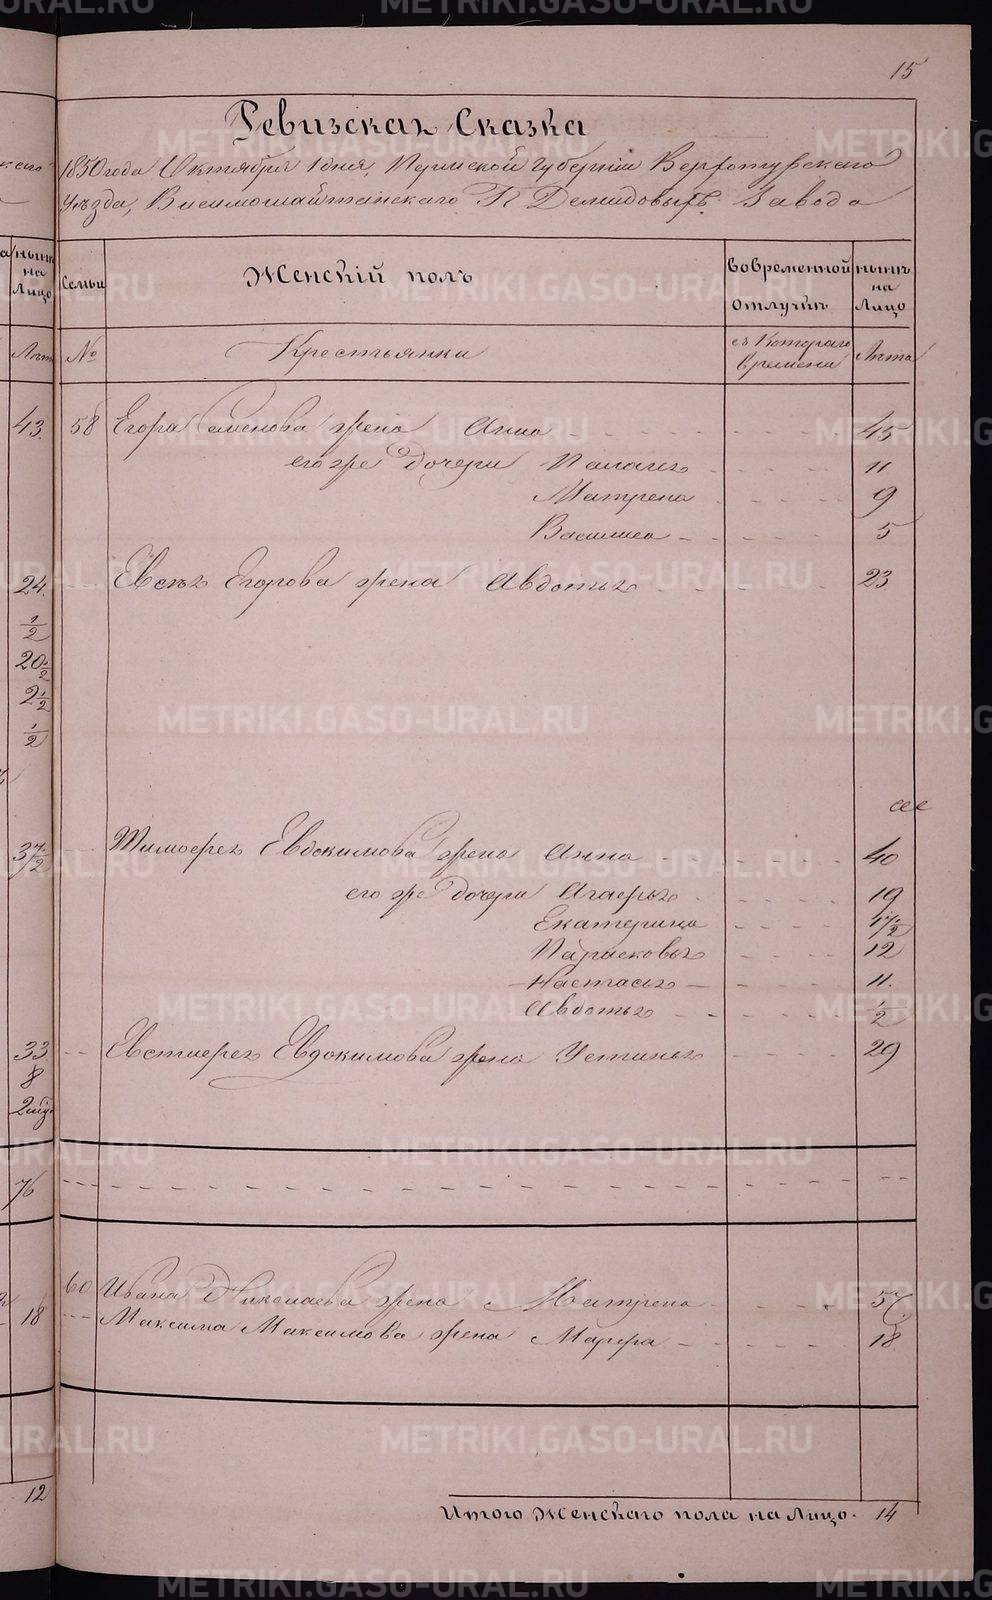 15
Ревизская Сказка
1850 года Октября 1 дня, Пермской Губернiи Верхотурскаго
Уѣзда, Висимошайтанскаго Г. Демидовыхъ Завода
Семьи
Женскiй полъ
Во временной отлучкѣ
нынѣ на Лицо
№
Крестьянки
съ Котораго времени
Лѣта
43 58 Егора Семенова жена Анна 45
его же Дочери Палагея 11
Матрена 9
Василиса 5
24 Евсѣя Егорова жена Авдотья 23
1/2
20 1/2
2 1/2
1/2
37 1/2 Тимофея Евдокимова жена Анна 40
его же дочери Агафья 19
Екатерина 17 1/2
Парасковья 12
Настасья 11
Авдотья 1/2
33 Евстифея Евдокимова жена Устинья 29
8
76
60 Ивана Николаева жена Матрена 57
18 Максима Максимова жена Марфа 18
12
Итого Женскаго пола на Лицо. 14
METRIKI.GASO-URAL.RU